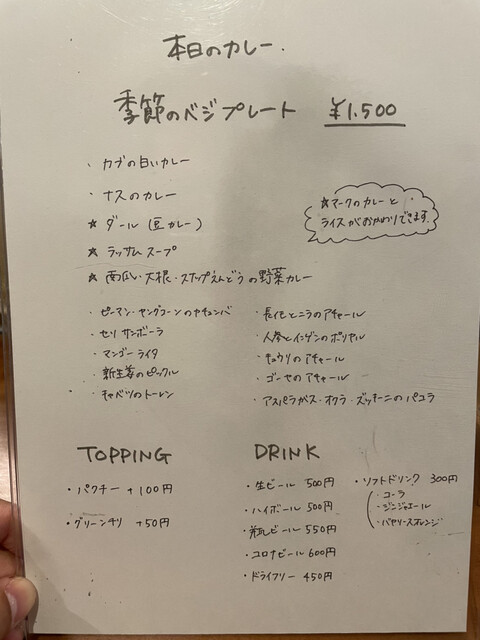 本日のカレー.
季節のベジプレート ¥1,500
・カブの白いカレー
・ナスのカレー
★ダール(豆カレー)
★ラッサムスープ
★南瓜・大根・スナップえんどうの野菜カレー
★マークのカレーと
ライスがおかわりできます.
・ピーマン・ヤングコーンのカチュンバ
・セリサンボーラ
・マンゴーライタ
・新生姜のピックル
・キャベツのトーレン
・長芋とニラのアチャール
・人参とインゲンのポリヤル
・キュウリのアチャール
・ゴーヤのアチャール
・アスパラガス・オクラ・ズッキーニのパコラ
TOPPING
・パクチー +100円
・グリーンチリ +50円
DRINK
・生ビール 500円
・ハイボール 500円
・瓶ビール 550円
・コロナビール 600円
・ドライフリー 450円
・ソフトドリンク 300円
・コーラ
・ジンジャエール
・バヤリースオレンジ